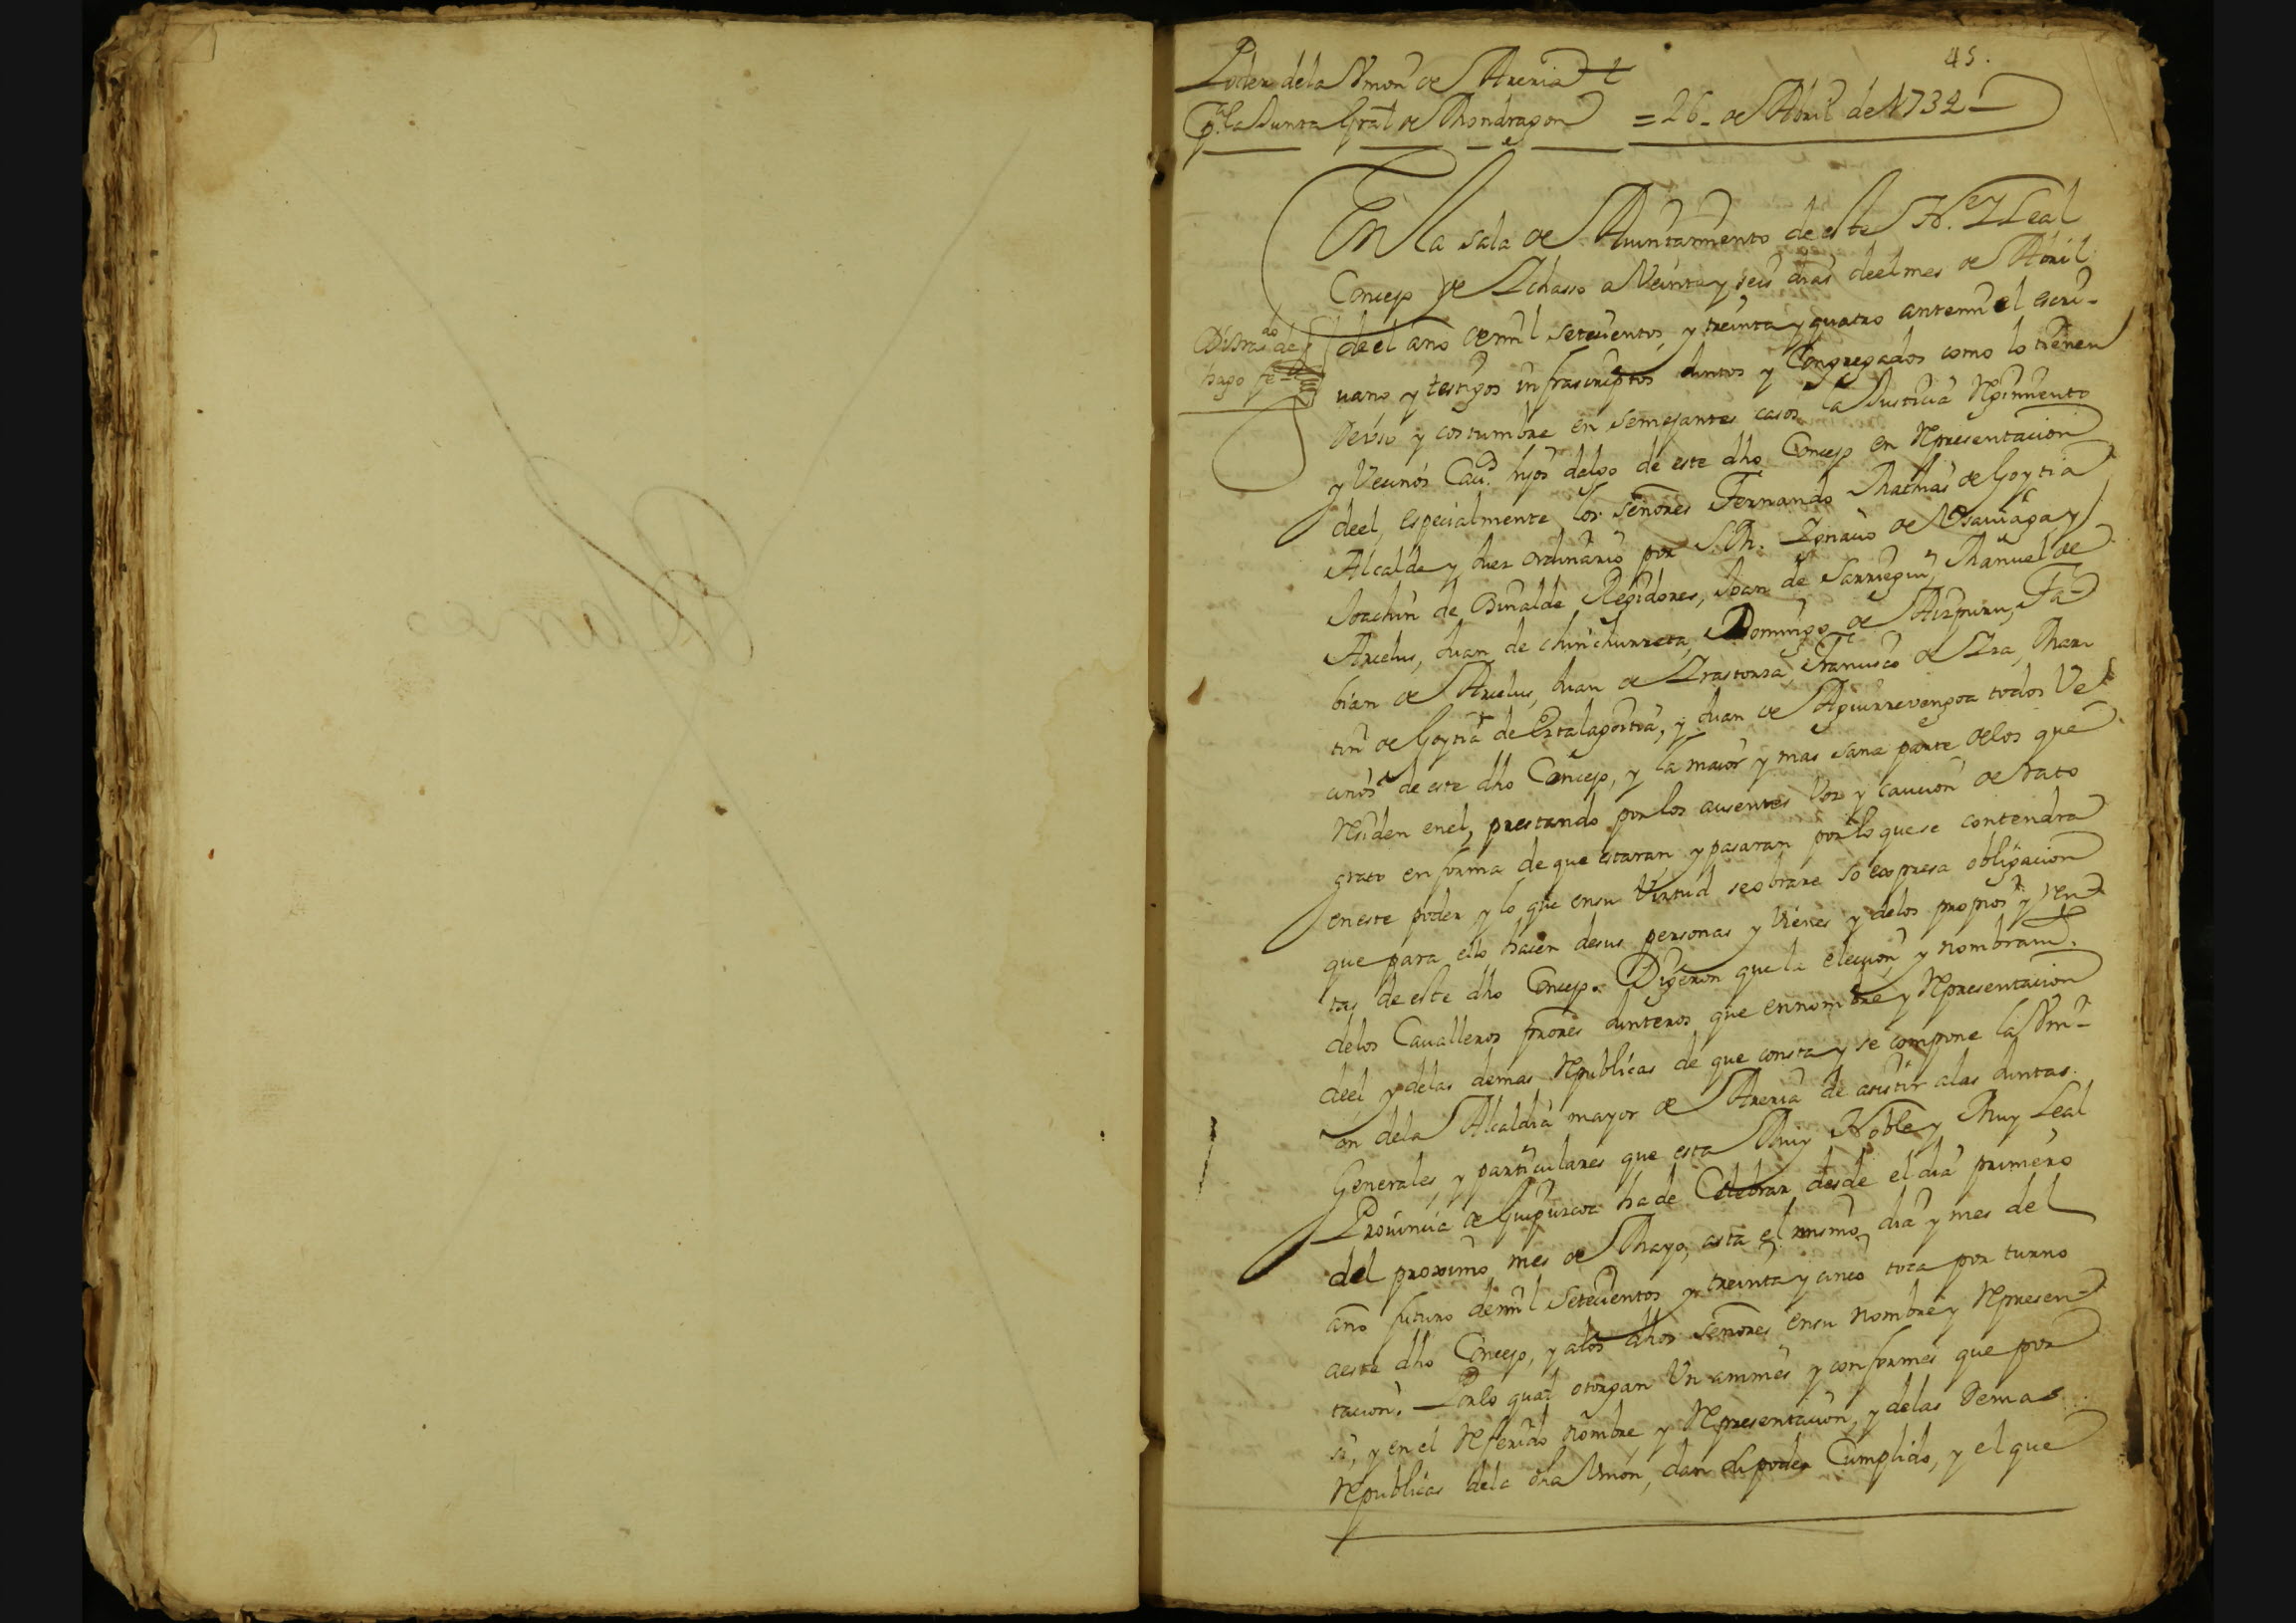 45.
Poder dela Vnon de Areria
pa la Junta Gral de Mondragon = 26 de Abril de 1734
En la sala de Aiuntamiento de este N. y Leal
Concejo de Ichasso a Veinte y seis dias deel mes de Abril
deel año de mil setecientos, y treinta y quatro ante mi el escri-
uano y testigos infrascriptos Juntos y Congregados como lo tienen
De vso y costumbre en semejantes casos la Justicia Rejimiento
y Vecinos Cau.s hijos delgo de este dho Concejo en Representacion
deel, especialmente los señores Fernando Mathias de Goytia
Alcalde y Juez ordinario por S.M. Ignacio de Vsauiaga y
Joachin de Recalde Regidores, Joan de Sarriegui, Manuel de
Arcelus, Juan de chinchurreta, Domingo de Aizpuru, Fa-
bian de Arcelus, Juan de Irastorza, Francisco de Iza, Mar-
tin de Goytia de Eztalagortia, y Juan de Aguirrevengoa todos Ve-
cinos de este dho Concejo, y la maior y mas sana parte delos que
Residen enel, prestando por los ausentes Voz y caucion de rato
grato en forma de que estaran y pasaran por lo que se contendra
en este poder y lo que en su Virtud se obrare so expresa obligacion
que para ello hacen desus personas y Vienes y delos propios y ren-
tas de este dho Concejo. Dijeron que la eleccion y nombram.to
delos Caualleros prores Junteros que en nombre y Representacion
deel y delas demas Republicas de que consta y se compone la Vni-
on dela Alcaldia mayor de Areria de asistir alas Juntas
Generales, y particulares que esta Muy Noble y Muy Leal
Prouincia de Guipuzcoa ha de Celebrar desde el dia primero
del proximo mes de Mayo, asta el mismo dia y mes del
año futuro demil Setecientos y treinta y cinco toca por turno
aeste dho Concejo, y alos dhos señores ensu nombre y Represen-
tacion. Por lo qual otorgan Vnanimes y conformes que por
si, y en el Referido nombre y Representacion, y delas Demas
Republicas dela dha Vnion, dan su poder Cumplido, y el que
hago fe
Blanco